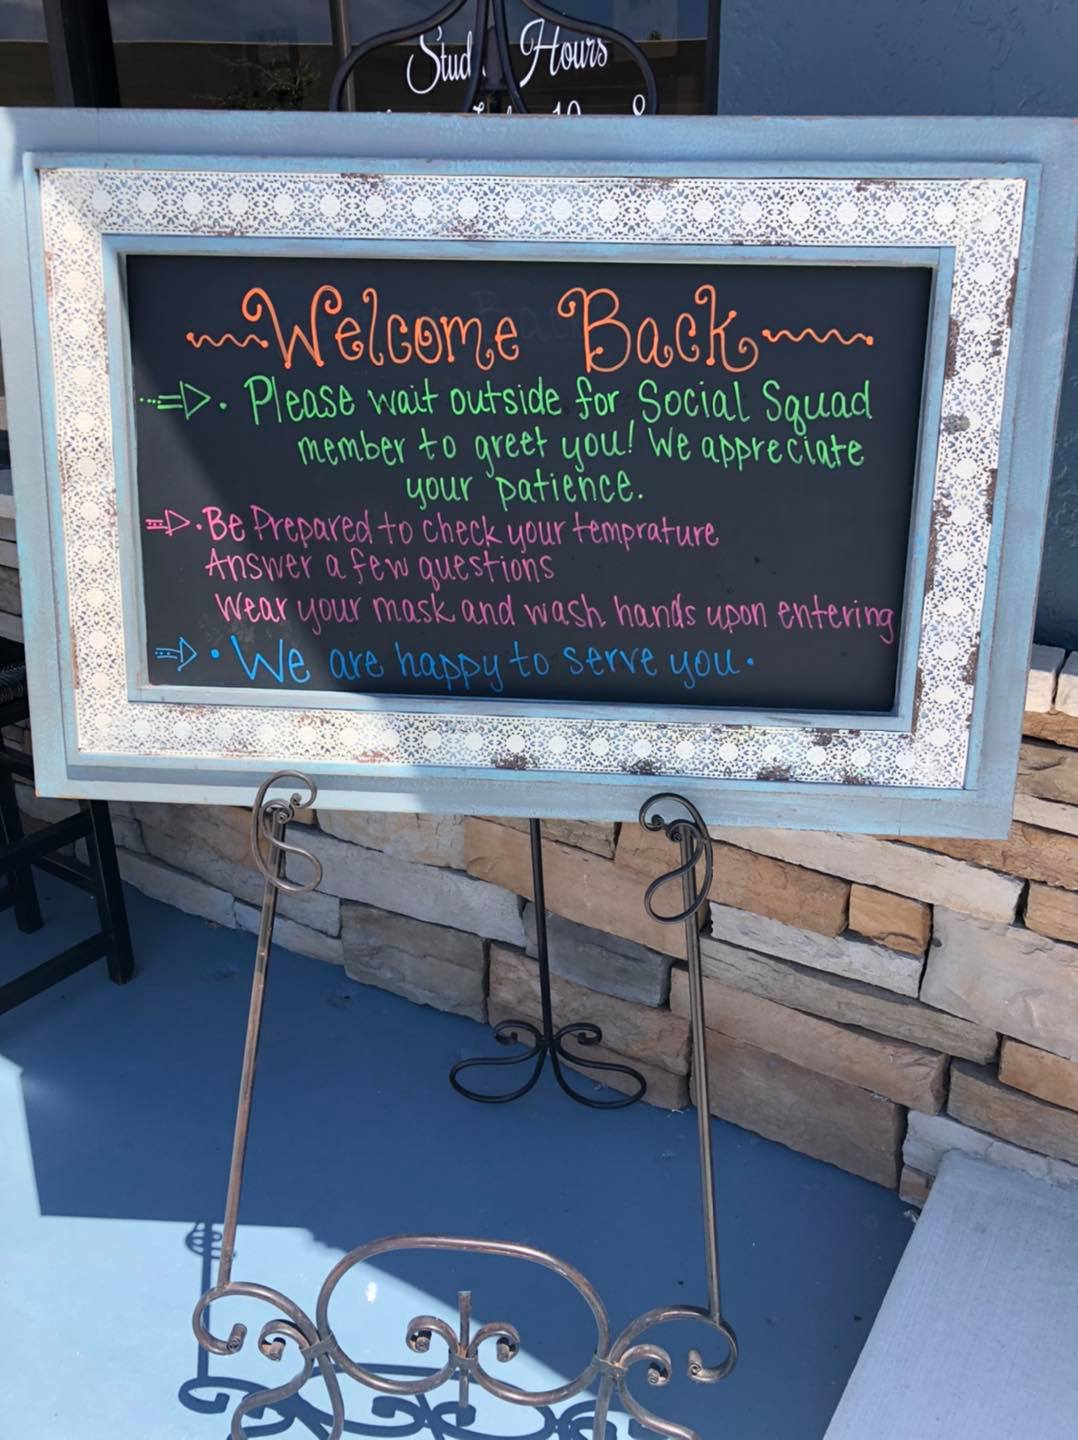 Hours
Welcome Back
Please wait outside for Social Squad
member to greet you! We appreciate
your patience.
Be Prepared to check your temprature
Answer a few questions
Wear your mask and wash hands upon entering
We are happy to serve you.